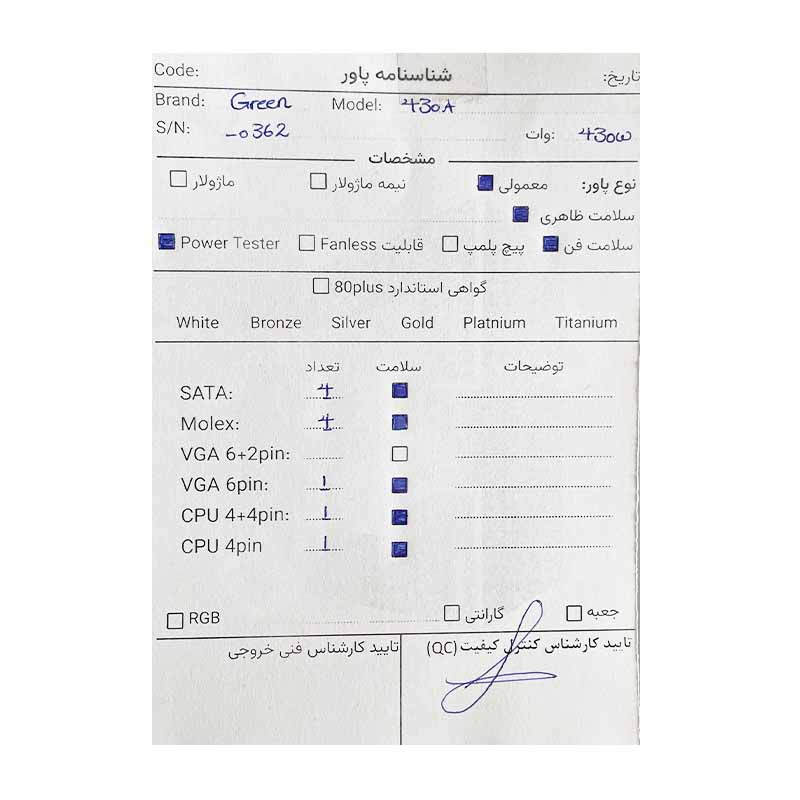 Code: شناسنامه پاور تاریخ:
Brand: Green Model: 430A
S/N: -0362 وات: 430W
مشخصات
نوع پاور: معمولی نیمه ماژولار ماژولار
سلامت ظاهری
سلامت فن پیچ پلمپ قابلیت Fanless Power Tester
گواهی استاندارد 80plus
White Bronze Silver Gold Platnium Titanium
تعداد سلامت توضیحات
SATA: 4
Molex: 4
VGA 6+2pin:
VGA 6pin: 1
CPU 4+4pin: 1
CPU 4pin 1
RGB گارانتی جعبه
تایید کارشناس کنترل کیفیت (QC) تایید کارشناس فنی خروجی